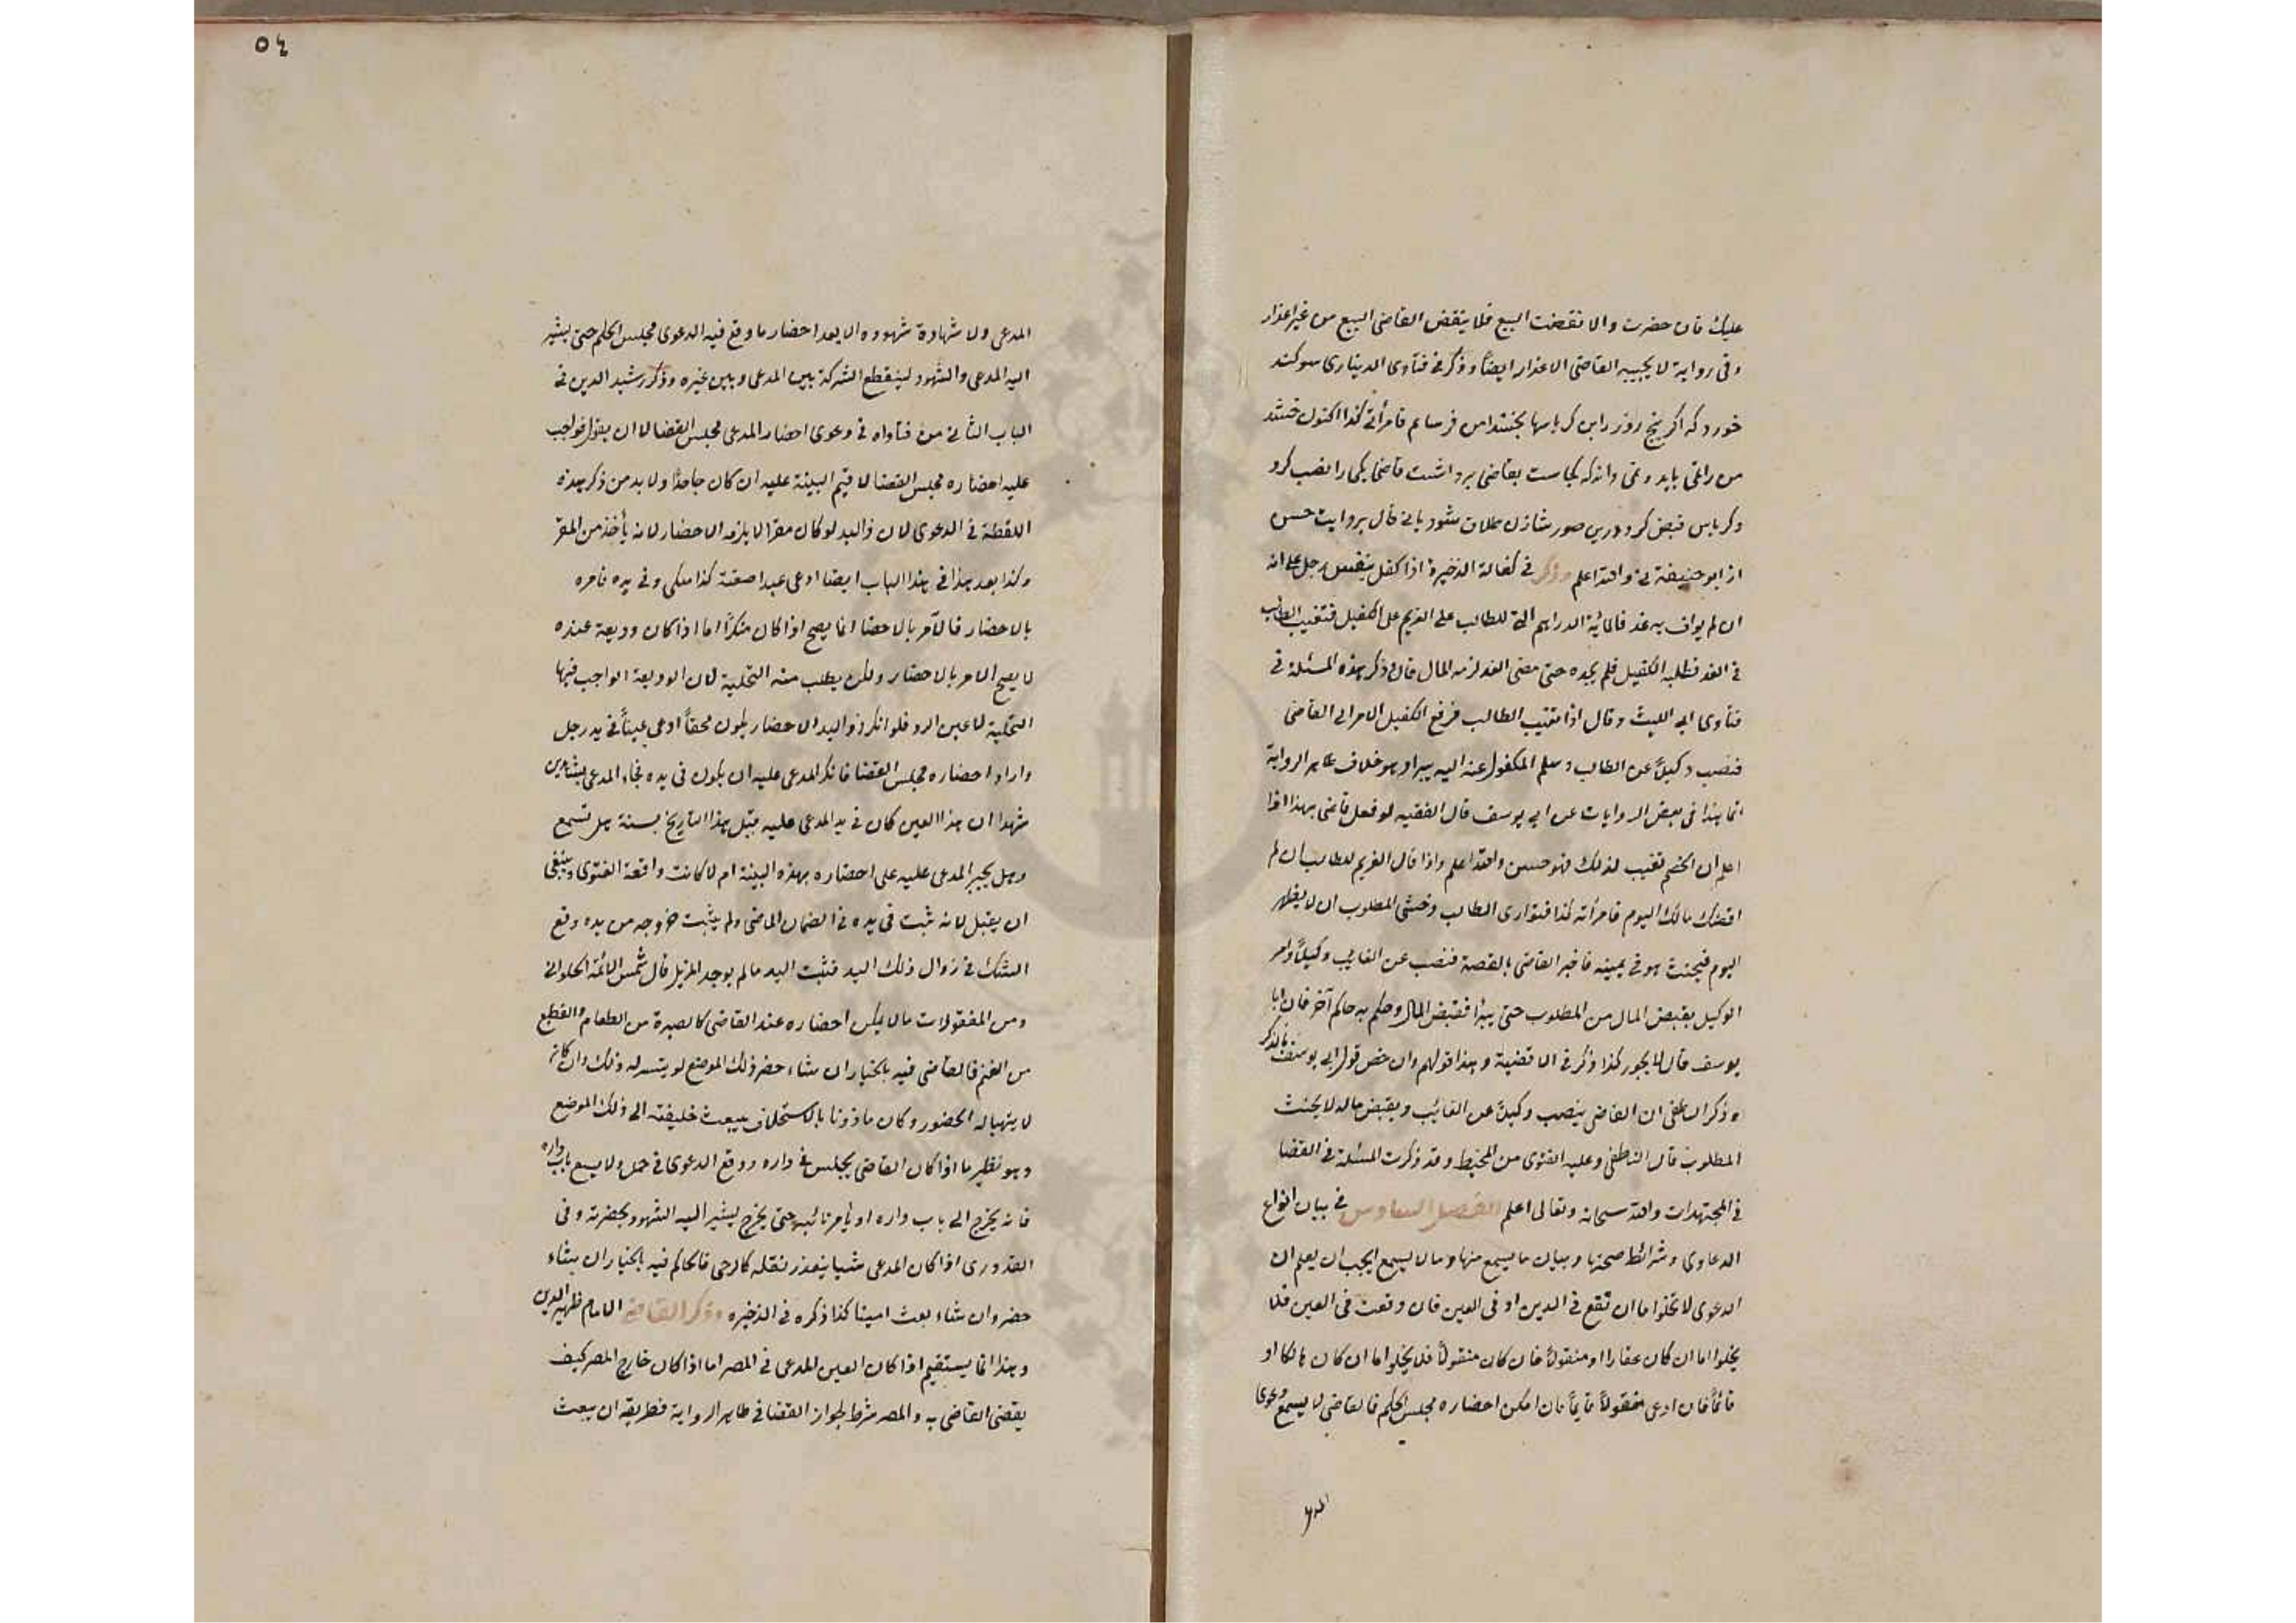 عليك فان حضرت والا نقضت البيع فلا ينقض القاضى البيع من غير اعذار
وفى رواية لا يجيبه القاضى الا عذار ايضاً وذكر فى فتاوى الدينارى سوكند
خورد كه اكر پنج روز را اين كرباسها من فرسام فامرأته كذا اكنون
من را باید بقاضى برداشت قاضى يكى را نصب كرد
وكرباس قبض كرد درين صور شازن طلاق شود يا نى قال بروايت حسن
از ابو حنيفة نى والله اعلم وذكر فى كفالة الذخيرة اذا كفل بنفس رجل على انه
ان لم يواف به غد فالمائة الدراهم التى للطالب على الغريم على الكفيل فتغيب الطالب
فى الغد فطلبه الكفيل فلم يجده حتى مضى الغد لزمه المال قال وذكر هذه المسئلة فى
فتاوى ابى الليث وقال اذا تغيب الطالب فرفع الكفيل الامر الى القاضى
فنصب وكيلاً عن الطالب وسلم المكفول عنه اليه يبرا وهو خلاف ظاهر الرواية
انما هذا فى بعض الروايات عن ابى يوسف قال الفقيه لو فعل قاضى بهذا اذا
اعلم ان الخصم تغيب لذلك فهو حسن والله اعلم واذا قال الغريم للطالب ان لم
اقضك مالك اليوم فامرأته كذا فتوارى الطالب وخشى المطلوب ان لا يظهر
اليوم فيحنث هو فى يمينه فاخبر القاضى بالقصة فنصب عن الغائب وكيلاً وامر
الوكيل بقبض المال من المطلوب حتى يبرأ فقبض المال وحكم به حاكم آخر فان ابا
يوسف قال لا يجوز كذا ذكر فى الاقضية وهذا قولهم وان خص قول ابى يوسف بالذكر
وذكر الناطفى ان القاضى ينصب وكيلاً عن الغائب ويقبض ماله لا يحنث
المطلوب قال الناطفى وعليه الفتوى من المحيط وقد ذكرت المسئلة فى القضا
فى المجتهدات والله سبحانه وتعالى اعلم الفصل السادس فى بيان انواع
الدعاوى وشرائط صحتها وبيان ما يسمع منها وما لا يسمع يجب ان يعلم ان
الدعوى لا تخلوا اما ان تقع فى الدين او فى العين فان وقعت فى العين فلا
يخلوا اما ان كان عقارا او منقولاً فان كان منقولاً فلا يخلوا اما ان كان هالكا او
قائماً فان ادعى منقولاً قايماً فان امكن احضاره مجلس الحكم فالقاضى لا يسمع دعوى
المدعى
٥٤
المدعى ولا شهادة شهوده الا بعد احضار ما وقع فيه الدعوى مجلس الحكم حتى يشير
اليه المدعى والشهود لينقطع الشركة بين المدعى وبين غيره وذكر رشيد الدين فى
الباب الثانى من فتاواه فى دعوى احضار المدعى مجلس القضا لا ان يقول فواجب
عليه احضاره مجلس القضا لا قيم البينة عليه ان كان جاحدًا ولا بد من ذكر هذه
اللفظة فى الدعوى لان ذا اليد لو كان مقرا لا يلزمه الاحضار لانه يأخذ من المقر
وكذا بعد هذا فى هذا الباب ايضا ادعى عبدا صفته كذا ملكى وفى يده فامره
بالاحضار فالامر بالاحضا انما يصح اذا كان منكراً اما اذا كان وديعة عنده
لا يصح الامر بالاحضار ولكن يطلب منه التخلية لان الوديعة الواجب فيها
التخلية لا عين الرد فلو انكر ذو اليد الاحضار يكون محقاً ادعى عيناً فى يد رجل
واراد احضاره مجلس القضا فانكر المدعى عليه ان يكون فى يده فجاء المدعى بشاهدين
شهدا ان هذا العين كان فى يد المدعى عليه قبل هذا التاريخ بسنة هل تسمع
وهل يجبر المدعى عليه على احضاره بهذه البينة ام لا كانت واقعة الفتوى وينبغى
ان يقبل لانه ثبت فى يده فى الضمان الماضى ولم يثبت خروجه من يده وقع
الشك فى زوال ذلك اليد فثبت اليد ما لم يوجد المزيل قال شمس الائمة الحلوانى
ومن المنقولات ما لا يمكن احضاره عند القاضى كالصبرة من الطعام والقطيع
من الغنم فالقاضى فيه بالخيار ان شاء حضر ذلك الموضع لو يتسر له ذلك وان كان
لا يتهيا له الحضور وكان ماذونا بالاستخلاف يبعث خليفته الى ذلك الموضع
وهو نظير ما اذا كان القاضى يجلس فى داره ووقع الدعوى فى جمل ولا يسع باب داره
فانه يخرج الى باب داره او يامر نائبه حتى يخرج ليشير اليه الشهود بحضرته وفى
القدورى اذا كان المدعى شيا يتعذر نقله كالرحى فالحاكم فيه بالخيار ان شاء
حضر وان شاء بعث امينا كذا ذكره فى الذخيره وذكر القاضى الامام ظهير الدين
وهذا انما يستقيم اذا كان العين المدعى فى المصر اما اذا كان خارج المصر كيف
يقضى القاضى به والمصر شرط لجواز القضا فى ظاهر الرواية فطريقه ان يبعث